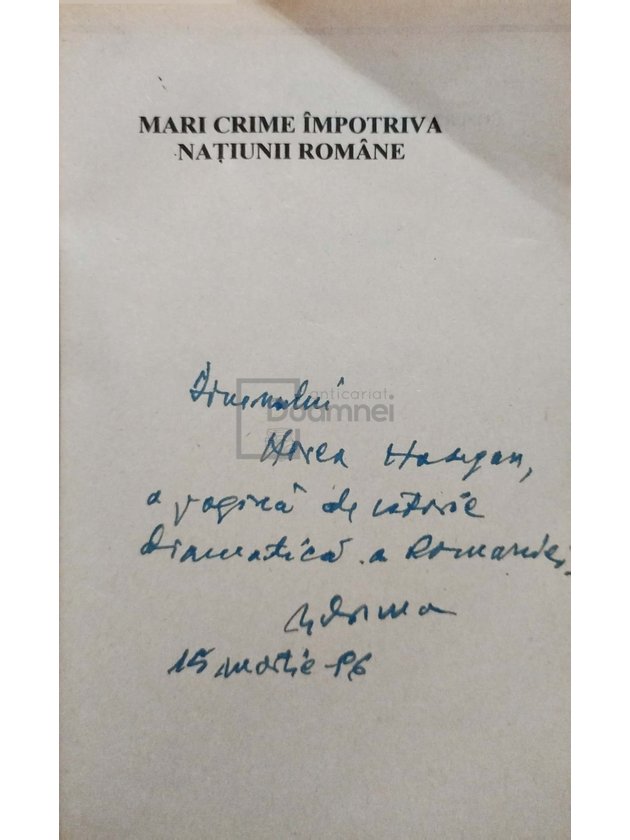 MARI CRIME ÎMPOTRIVA
NAȚIUNII ROMÂNE
anticariat
Doamnei
Horea
o pagină de istorie
dramatică a Romaniei
15 martie 96